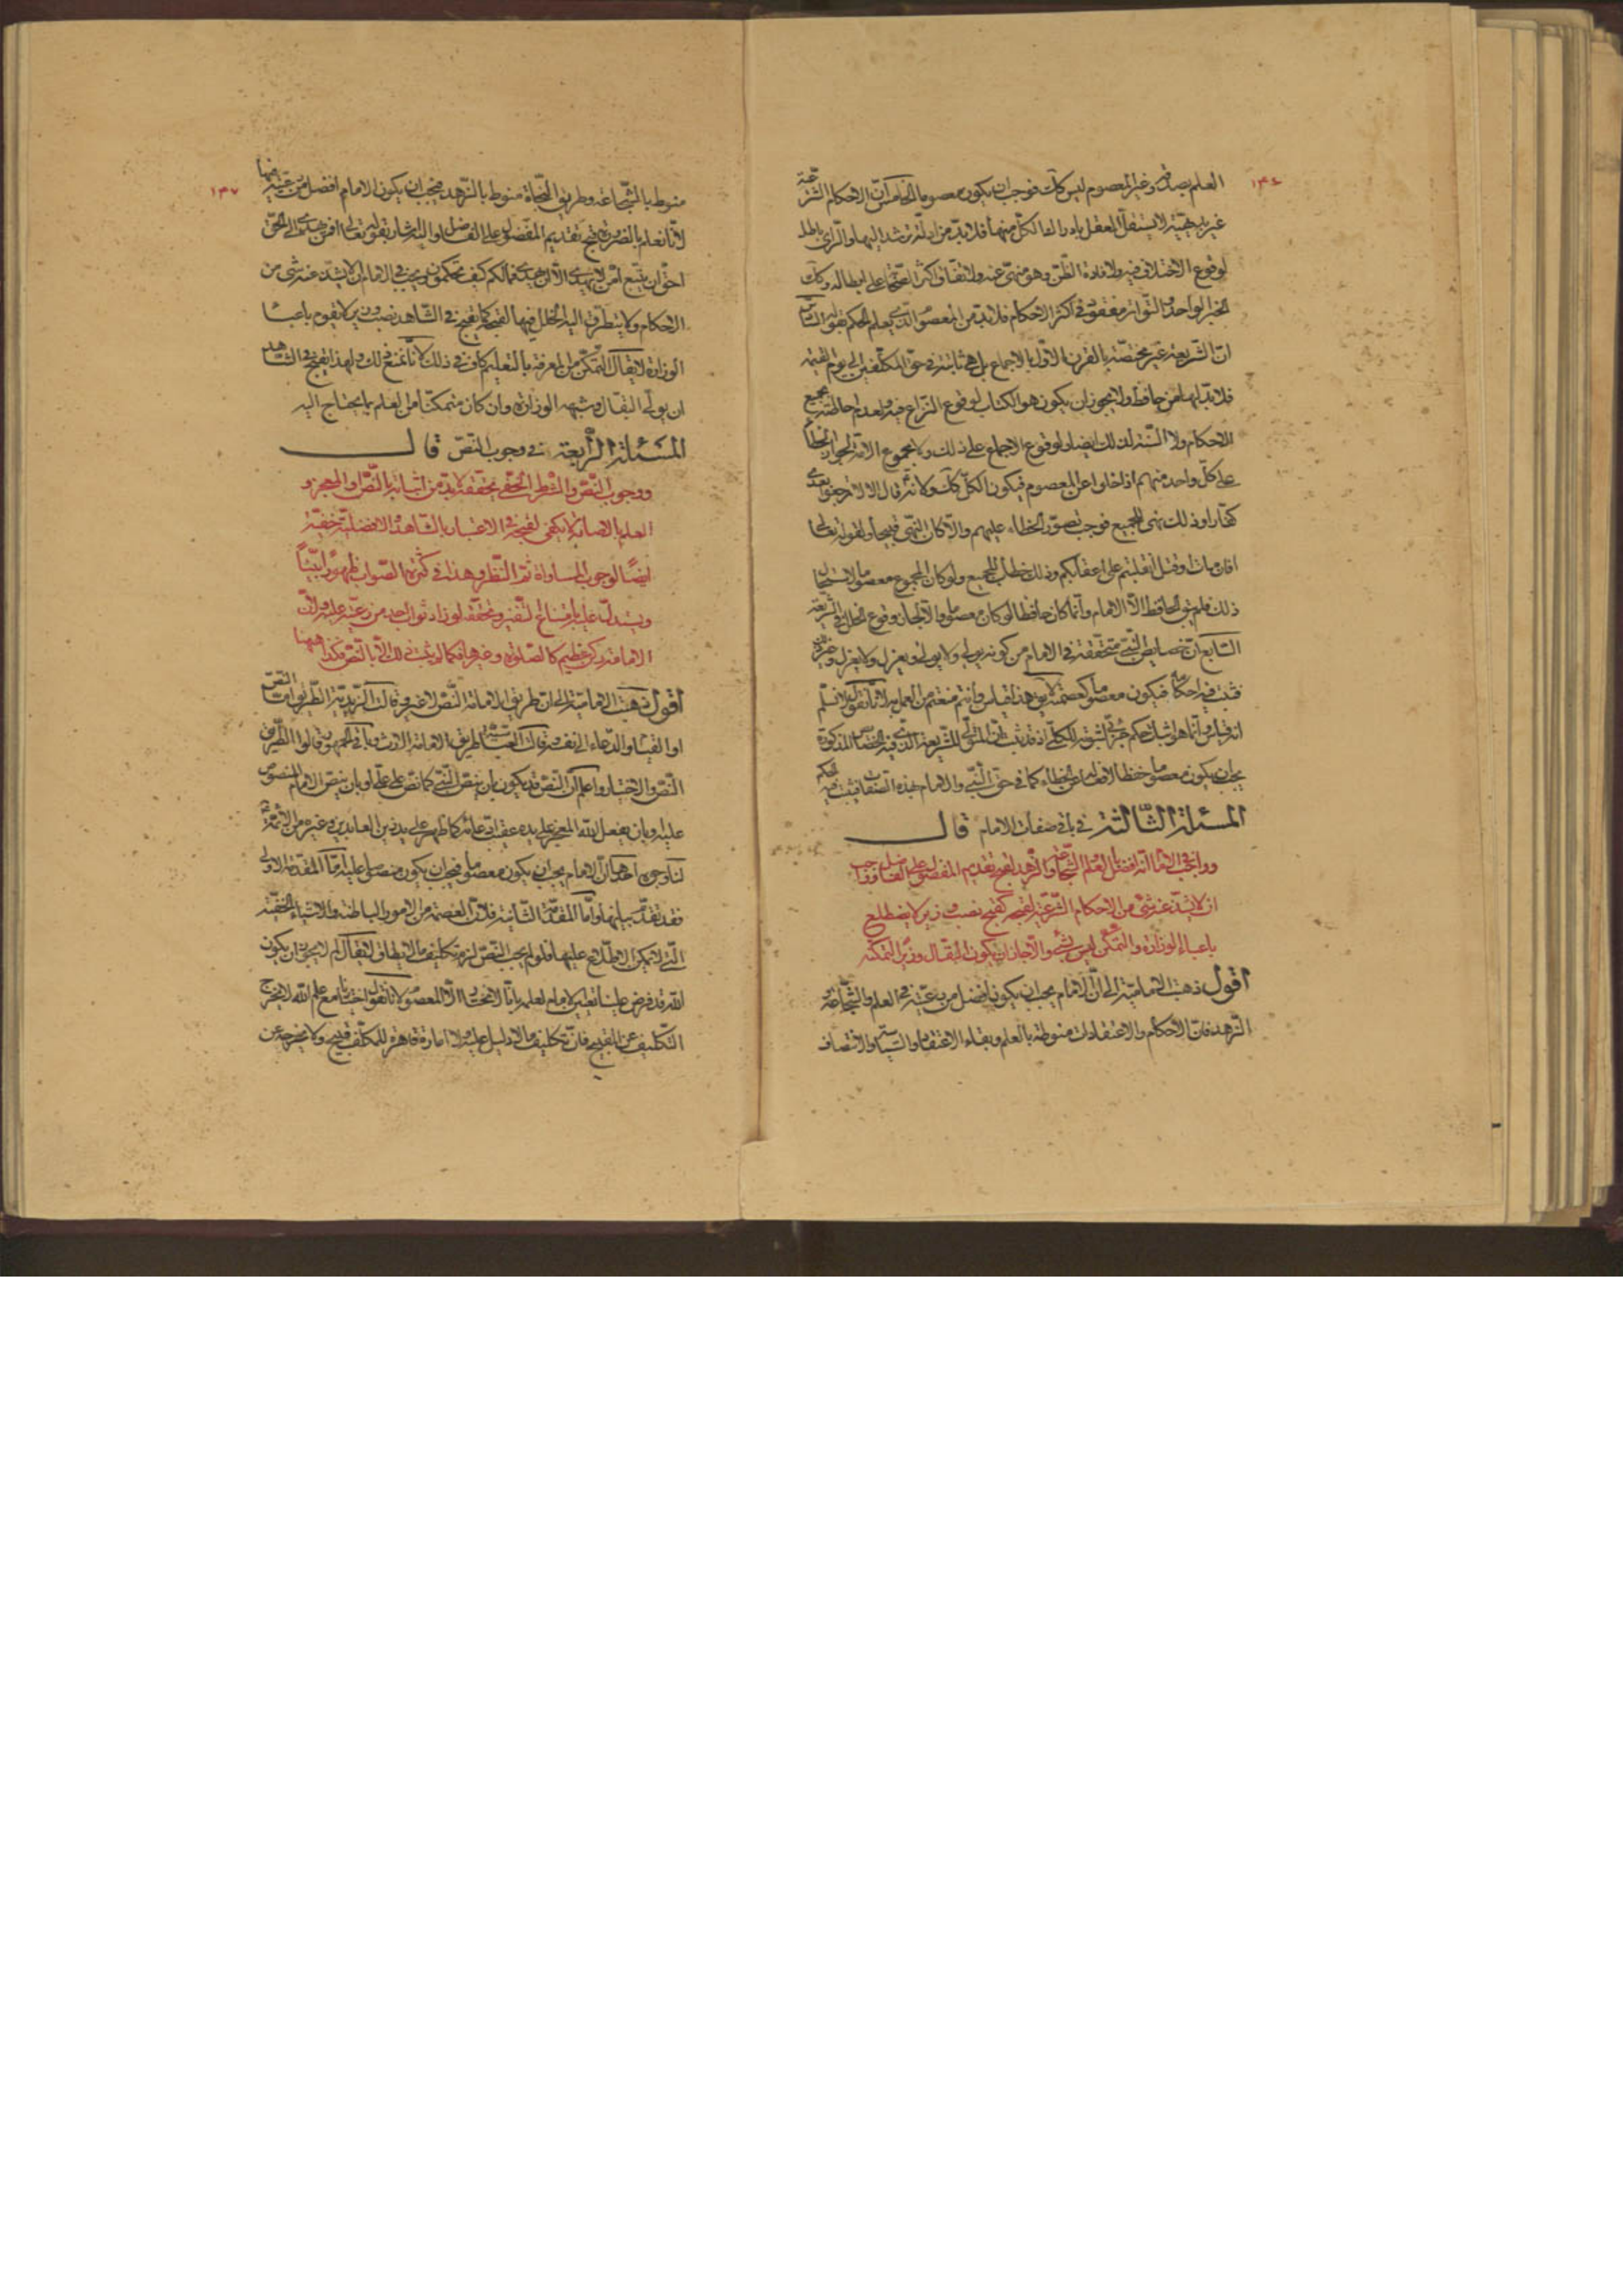 ١٣٦
العلم بصدقه وغير المعصوم ليس كك فوجب ان يكون معصوما الخامس انّ الاحكام الشرعيّة
غير بديهيّة لا يستقلّ العقل بادراك الكلّ منها فلا بدّ من ادلّة ترشد اليها والرّأى باطل
لوقوع الاختلاف فيه ولافادة الظّنّ وهو منهىّ عنه ولاتفاق اكثر الصّحابة على ابطاله وكك
الخبر الواحد والتّواتر مفقود فى اكثر الاحكام فلا بدّ من المعصوم الّذى يعلم الحكم بقوله السّادس
انّ الشّريعة غير مختصّة بالقرن الاوّل بالاجماع بل هى ثابتة فى حقّ المكلّفين الى يوم القيمة
فلا بدّ لها من حافظ ولا يجوز ان يكون هو الكتاب لوقوع النّزاع فيه ولعدم احاطته بجميع
الاحكام ولا السّنّة لذلك ايضا ولوقوع الاجماع على ذلك ولا مجموع الامّة لجواز الخطأ
على كلّ واحد منهم اذا خلوا عن المعصوم فيكون الكلّ كك ولانّه قال الا لا ترجعوا بعدى
كفّارا وذلك نهى للجميع فوجب تصوّر الخطاء عليهم والّا كان النّهى قبيحا ولقوله تعالى
افان مات او قتل انقلبتم على اعقابكم وذلك خطاب للجميع ولو كان المجموع معصوما لاستحال
ذلك فلم يبق الحافظ الّا الامام وانّما كان حافظا لو كان معصوما والّا لجاز وقوع الخلل فى الشّريعة
السّابع انّ خصايص النّبىّ متحقّقة فى الامام من كونه يولى ولا يولى ويعزل ولا يعزل وغيرهن
فثبت فيه احكامه فيكون معصوما كعصمته لا يق هذا قياس وانتم منعتم من العمل به لانّا نقول لا نسلّم
انه قياس وانّما هو اثبات حكم جزئى لثبوته للكلّى اذ قد ثبت انّ المتولّى للشّريعة الّذى فيه الخصايص المذكورة
يجب ان يكون معصوما حفظا لافعاله عن الخطاء كما فى حقّ النّبىّ والامام بهذه الصّفات فيثبت فيه الحكم
المسئلة الثّالثة فى باقى صفات الامام قال
وواجب فى الامام انّه افضل بالعلم والشّجاعة والزّهد لقبح تقديم المفضول على الفاضل وواجب
ان لا يشذّ عنه شئ من الاحكام الشّرعيّة لقبحه كقبح نصب وزير لا يضطلع
باعباء الوزارة والتّمكّن ليس بشئ والّا جاز ان يكون البقّال وزيرا لتمكّنه
اقول ذهبت الاماميّة الى انّ الامام يجب ان يكون افضل من رعيّته فى العلم والشّجاعة و
الزّهد فانّ الاحكام والاعتقادات منوطة بالعلم وبقاء الاعتقاد والسياسة والانتصاف
١٣٧
منوط بالشّجاعة وطريق النّجاة منوط بالزّهد فيجب ان يكون الامام افضل من رعيّته فيها
لانّا نعلم بالضّرورة قبح تقديم المفضول على الفاضل واليه اشار بقوله تعالى افمن يهدى الى الحقّ
احقّ ان يتّبع امّن لا يهدّى الّا ان يهدى فما لكم كيف تحكمون ويجب فى الامام ان لا يشذّ عنه شئ من
الاحكام ولا يتطرّق اليه الخلل فيها لقبحه كما يقبح فى الشّاهد نصب وزير لا يقوم باعباء
الوزارة لا يقال التّمكّن من المعرفة بالتعليم كاف فى ذلك لانّا نمنع ذلك ولهذا يقبح فى الشّاهد
ان يولّى البقّال وشبهه الوزارة وان كان متمكّنا من العلم بما يحتاج اليه
المسئلة الرّابعة فى وجوب النّصّ قال
ووجوب النّصّ والشّطر الخفى تحقّقه لا بدّ من اثباته بالنّصّ او المعجز و
العلم بالاصابة لا يكفى لقبحه فى الاعتبار بالشّاهد والافضليّة خفيّة
ايضًا لوجوب المساواة ثمّ النّظر فى هذا فى كثرة الصّواب ظهورًا بيّنًا
ويستدلّ عليه بامتناع التّغير وتحقّقه لو زاد ثواب احد من رعيّته عليه ولانّ
الامامة ركن عظيم كالصّلوة وغيرها فكما لم يثبت ذلك الّا بالنّصّ فكذا ههنا
اقول ذهبت الاماميّة الى انّ طريق الامامة النّصّ لا غير وقالت الزّيديّة الطّريق امّا النّصّ
او القيام والدّعاء الى نفسه وقالت العبّاسيّة الطريق الى الامامة الارث وباقى الجمهور قالوا الطّريق
النّصّ والاختيار واعلم انّ النّصّ قد يكون بان ينصّ النّبىّ كما نصّ على علىّ او بان ينصّ الامام المنصوص
عليه وبان يفعل اللّه المعجز على يده عقيب ادّعائه كما ظهر على يد زين العابدين وغيره من الائمّة
لنا وجوه احدها انّ الامام يجب ان يكون معصوما فيجب ان يكون منصوصا عليه امّا المقدّمة الاولى
فقد تقدّم بيانها وامّا المقدّمة الثّانية فلانّ العصمة من الامور الباطنة والاشياء الخفيّة
الّتى لا يمكن الاطّلاع عليها فلو لم يجب النّصّ لزم تكليف ما لا يطاق لا يقال لم لا يجوز ان يكون
اللّه قد فرض علينا تعيين الامام لعلمه بانّا لا نختار الّا المعصوم لانّا نقول اختيارنا مع علم اللّه لا يخرج
التّكليف عن القبح فانّ تكليف ما لا دليل عليه ولا امارة قاهرة للمكلّف قبيح ولا يخرجه عن